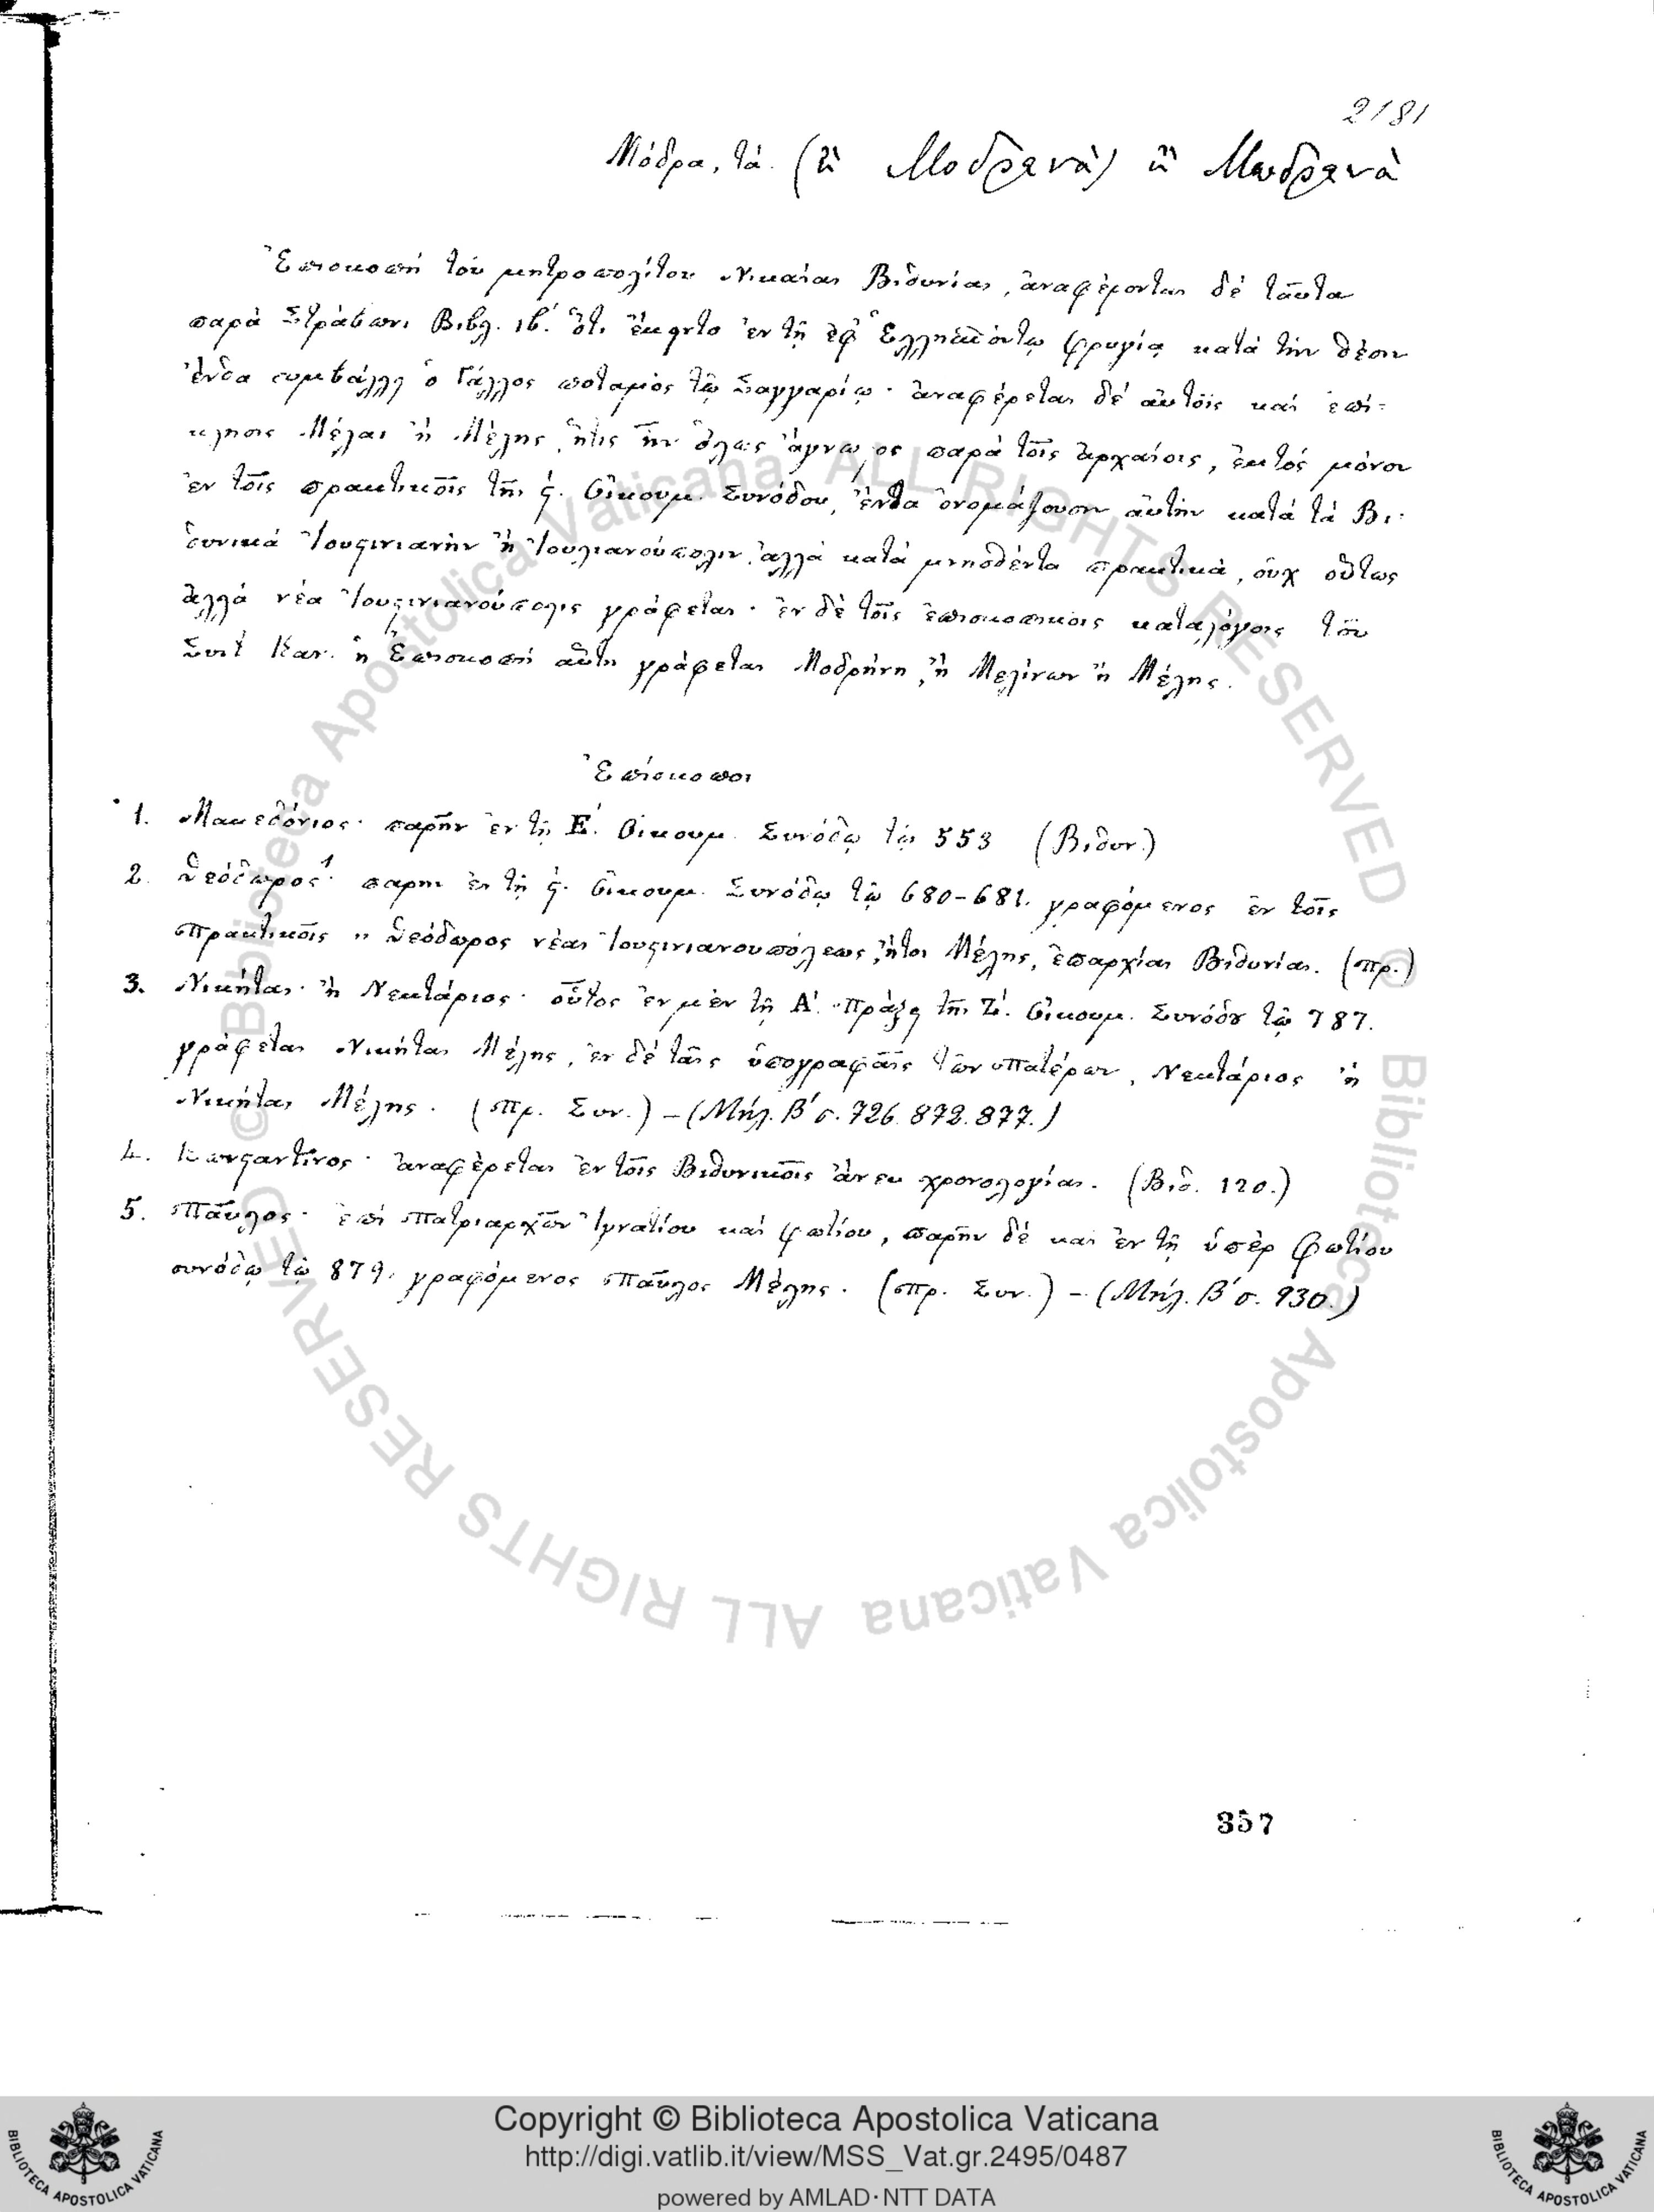 2181
Μόδρα, τά. (ἢ Μοδρενὰ) ἢ Μωδρενὰ
Ἐπισκοπή τοῦ μητροπολίτου Νικαίας Βιθυνίας, ἀναφέρονται δέ ταῦτα
παρὰ Στράβωνι Βιβλ. ιβ΄. ὅτι ἔκειτο ἐν τῇ ἐφ᾿ Ἑλλησπόντῳ Φρυγίᾳ κατά τήν θέσιν
ἔνθα συμβάλλει ὁ Γάλλος ποταμός τῷ Σαγγαρίῳ· ἀναφέρεται δέ αὐτοῖς καί ἐπί-
κλησις Μέλαι ἢ Μέλης, ἥτις ἦν ὅλως ἄγνωστος παρά τοῖς ἀρχαίοις, ἐκτός μόνον
ἐν τοῖς πρακτικοῖς τῆς ϛ΄. Οἰκουμ. Συνόδου, ἔνθα ὀνομάζουσιν αὐτήν κατά τά Βι-
θυνικά Ἰουστινιανήν ἢ Ἰουλιανούπολιν, ἀλλά κατά μνησθέντα πρακτικά, οὐχ οὕτως
ἀλλά νέα Ἰουστινιανούπολις γράφεται· ἐν δέ τοῖς ἐπισκοπικοῖς καταλόγοις τοῦ
Συντ Καν. ἡ Ἐπισκοπή αὕτη γράφεται Μοδρήνη, ἢ Μελίνων ἢ Μέλης.
Ἐπίσκοποι
1. Μακεδόνιος· παρῆν ἐν τῇ Ε΄. Οἰκουμ. Συνόδῳ τῷ 553 (Βιθυν.)
2. Θεόδωρος 1· παρην ἐν τῇ ϛ΄. Οἰκουμ. Συνόδῳ τῷ 680-681. γραφόμενος ἐν τοῖς
πρακτικοῖς „ Θεόδωρος νέας Ἰουστινιανουπόλεως, ἤτοι Μέλης, ἐπαρχίας Βιθυνίας. (πρ.)
3. Νικήτας· ἢ Νεκτάριος· οὗτος ἐν μέν τῇ Α΄. Πράξει τῆς Ζ΄. Οἰκουμ. Συνόδου τῷ 787.
γράφεται Νικήτας Μέλης, ἐν δέ ταῖς ὑπογραφαῖς τῶν Πατέρων, Νεκτάριος ἢ
Νικήτας Μέλης. (Πρ. Συν.) – (Μήλ. Β΄ σ. 726. 872. 877.)
4. Κωνσταντῖνος· ἀναφέρεται ἐν τοῖς Βιθυνικοῖς ἄνευ χρονολογίας. (Βιθ. 120.)
5. Παῦλος· ἐπί Πατριαρχῶν Ἰγνατίου καί Φωτίου, παρῆν δέ καί ἐν τῇ ὑπέρ Φωτίου
συνόδῳ τῷ 879. γραφόμενος Παῦλος Μέλης. (Πρ. Συν.) – (Μήλ. Β΄ σ. 930.)
357
© Biblioteca Apostolica Vaticana ALL RIGHTS RESERVED © Biblioteca Apostolica Vaticana ALL RIGHTS RESERVED
Copyright © Biblioteca Apostolica Vaticana
http://digi.vatlib.it/view/MSS_Vat.gr.2495/0487
powered by AMLAD·NTT DATA
BIBLIOTECA APOSTOLICA VATICANA
BIBLIOTECA APOSTOLICA VATICANA